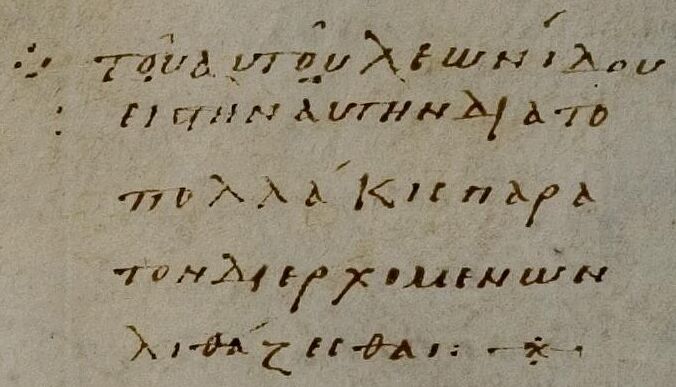 τοῦ αυτοῦ λεωνίδου
εις την ἀυτην δια το
πολλάκις παρα
τον διερχομενων
λιθάζεσθαι :